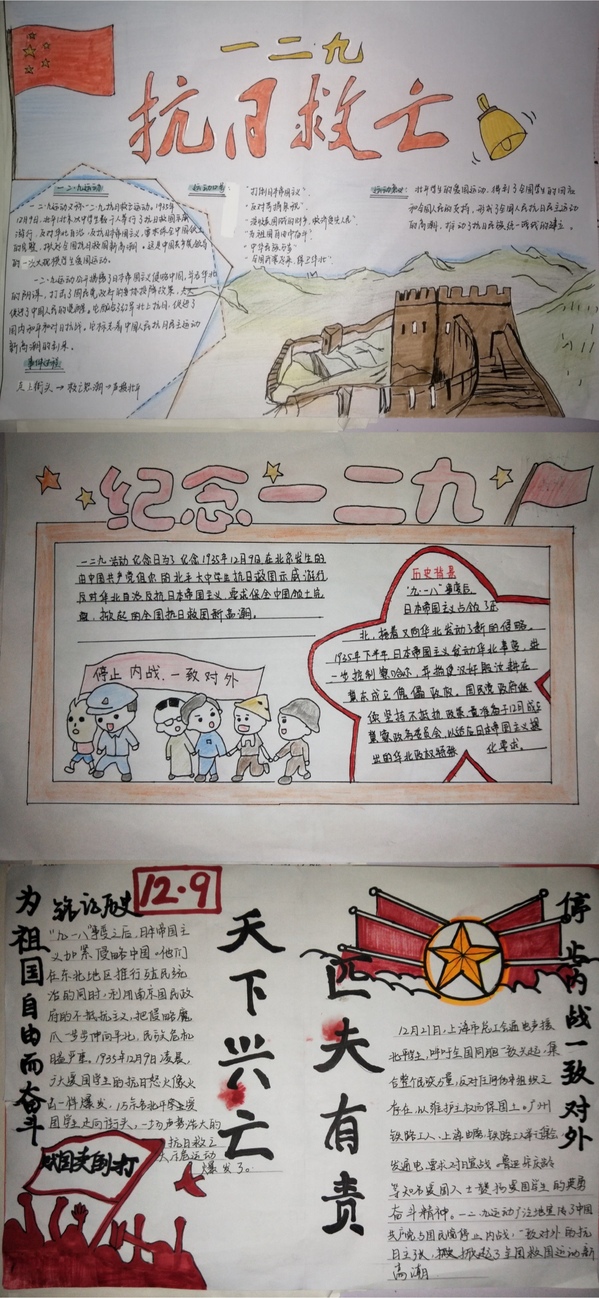 一二九
抗日救亡
一二九运动
一二九运动又称一二九抗日救亡运动。1935年
12月9日，北平大中学生数千人举行了抗日救国示威
游行，反对华北自治，反抗日本帝国主义，要求保全中国领土
的完整，掀起全国抗日救国新高潮。这是中国共产党领导
的一次大规模学生爱国运动。
一二九运动公开揭露了日本帝国主义侵略中国，并吞华北
的阴谋，打击了国民党政府的妥协投降政策，大大
促进了中国人民的觉醒。它配合了红军北上抗日，促进了
国内和平和对日抗战。它标志着中国人民抗日民主运动
新高潮的到来。
事件过程
走上街头→救亡怒潮→声援北平
"打倒日本帝国主义"
"反对华北自治"
"为祖国自由而奋斗"
"中华民族万岁"
运动意义：北平学生的爱国运动，得到了全国学生的响应
和全国人民的支持，形成了全国人民抗日民主运动
的高潮，推动了抗日民族统一战线的建立。
纪念一二九
一二九活动纪念日为了纪念1935年12月9日在北京发生的
由中国共产党组织的北平大中学生抗日救国示威游行
反对华北自治反抗日本帝国主义，要求保全中国领土完
整，掀起的全国抗日救国新高潮。
停止内战.一致对外
历史背景
"九.一八"事变后，
日本帝国主义占领了东
北，接着又向华北发动了新的侵略。
1935年下半年日本帝国主义发动华北事变，进
一步控制察哈尔，并指使汉奸殷汝耕在
冀东成立傀儡政权。国民党政府继
续坚持不抵抗政策竟准备于12月成立
冀察政务委员会，以适应日本帝国主义提
出的华北政权特殊化要求。
为祖国自由而奋斗
12·9
"九一八"事变之后，日本帝国主
义加紧侵略中国。他们
在东北地区推行殖民统
治的同时，利用南京国民政
府的不抵抗主义，把侵略魔
爪一步步伸向华北，民族危机
日益严重。1935年12月9日凌晨，
广大爱国学生的抗日怒火像火
山一样爆发，
国学生走向街头，一场声势浩大的
抗日救亡
爆发了。
打倒卖国贼
天下兴亡
匹夫有责
停止内战一致对外
12月21日，上海市总工会通电声援
北平学生，呼吁全国同胞一致奋起，集
存在，以维护主权而保国土。广州
铁路工人、上海邮局、铁路工人举行集会
发通电，要求对日宣战。鲁迅、宋庆龄
等知名爱国人士赞扬爱国学生的英勇
奋斗精神。一二九运动广泛地宣传了中国
共产党与国民党停止内战，一致对外的抗
日主张，掀起了全国救国运动新
高潮